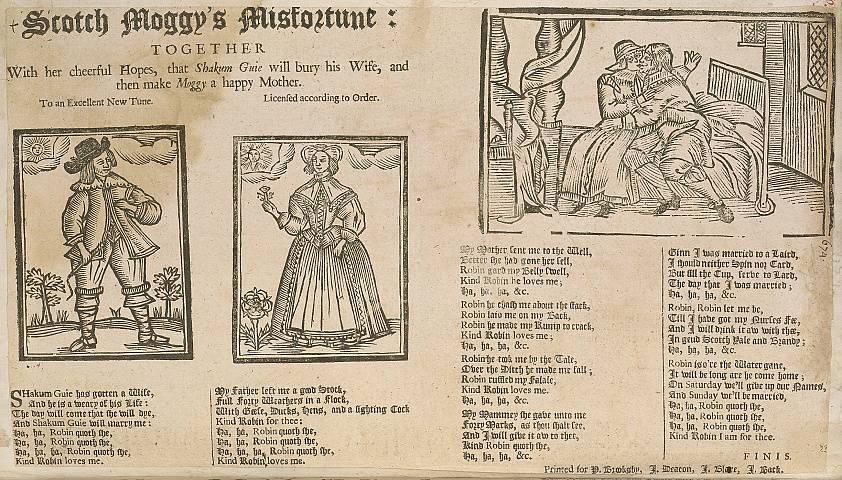 Scotch Moggy's Misfortune:
TOGETHER
With her cheerful Hopes, that Shakum Guie will bury his Wife, and
then make Moggy a happy Mother.
To an Excellent New Tune.
Licensed according to Order.
SHakum Guie has gotten a Wife,
And he is a weary of his Life:
The day will come that she will dye,
And Shakum Guie will marry me:
Ha, ha, Robin quoth she,
Ha, ha, Robin quoth she,
Ha, ha, ha, Robin quoth she,
Kind Robin loves me.
My Father left me a good Stock,
Full Forty Weathers in a Flock,
With Geese, Ducks, Hens, and a fighting Cock
Kind Robin for thee:
Ha, ha, Robin quoth she,
Ha, ha, Robin quoth she,
Ha, ha, ha, Robin quoth she,
Kind Robin loves me.
My Mother sent me to the Well,
Better she had gone her sell,
Robin gard my Belly swell,
Kind Robin he loves me;
Ha, ha, ha, &c.
Robin he chast me about the stack,
Robin laid me on my Back,
Robin he made my Rump to crack,
Kind Robin loves me;
Ha, ha, ha, &c.
Robin he took me by the Tale,
Over the Ditch he made me fall;
Robin ruffled my
Kind Robin loves me.
Ha, ha, ha, &c.
My Mammey she gave unto me
Forty Marks, as thou shalt see,
And I will give it aw to thee,
Kind Robin quoth she,
Ha, ha, ha, &c.
Ginn I was married to a Laird,
I should neither Spin nor Card,
But fill the Cup, serve to Lard,
The day that I was married;
Ha, ha, ha, &c.
Robin, Robin let me be,
Till I have got my Nurses Fee,
And I will drink it aw with thee,
In geud Scotch Yale and Brandy;
Ha, ha, ha, &c.
Robin is o're the Water gane,
It will be long are he come home;
On Saturday we'll give up our Names,
And Sunday we'll be married,
Ha, ha, Robin quoth she,
Ha, ha, Robin quoth she,
Ha, ha, ha, Robin quoth she,
Kind Robin I am for thee.
FINIS.
Printed for P. Brooksby, J. Deacon, J. Blare, J. Back.